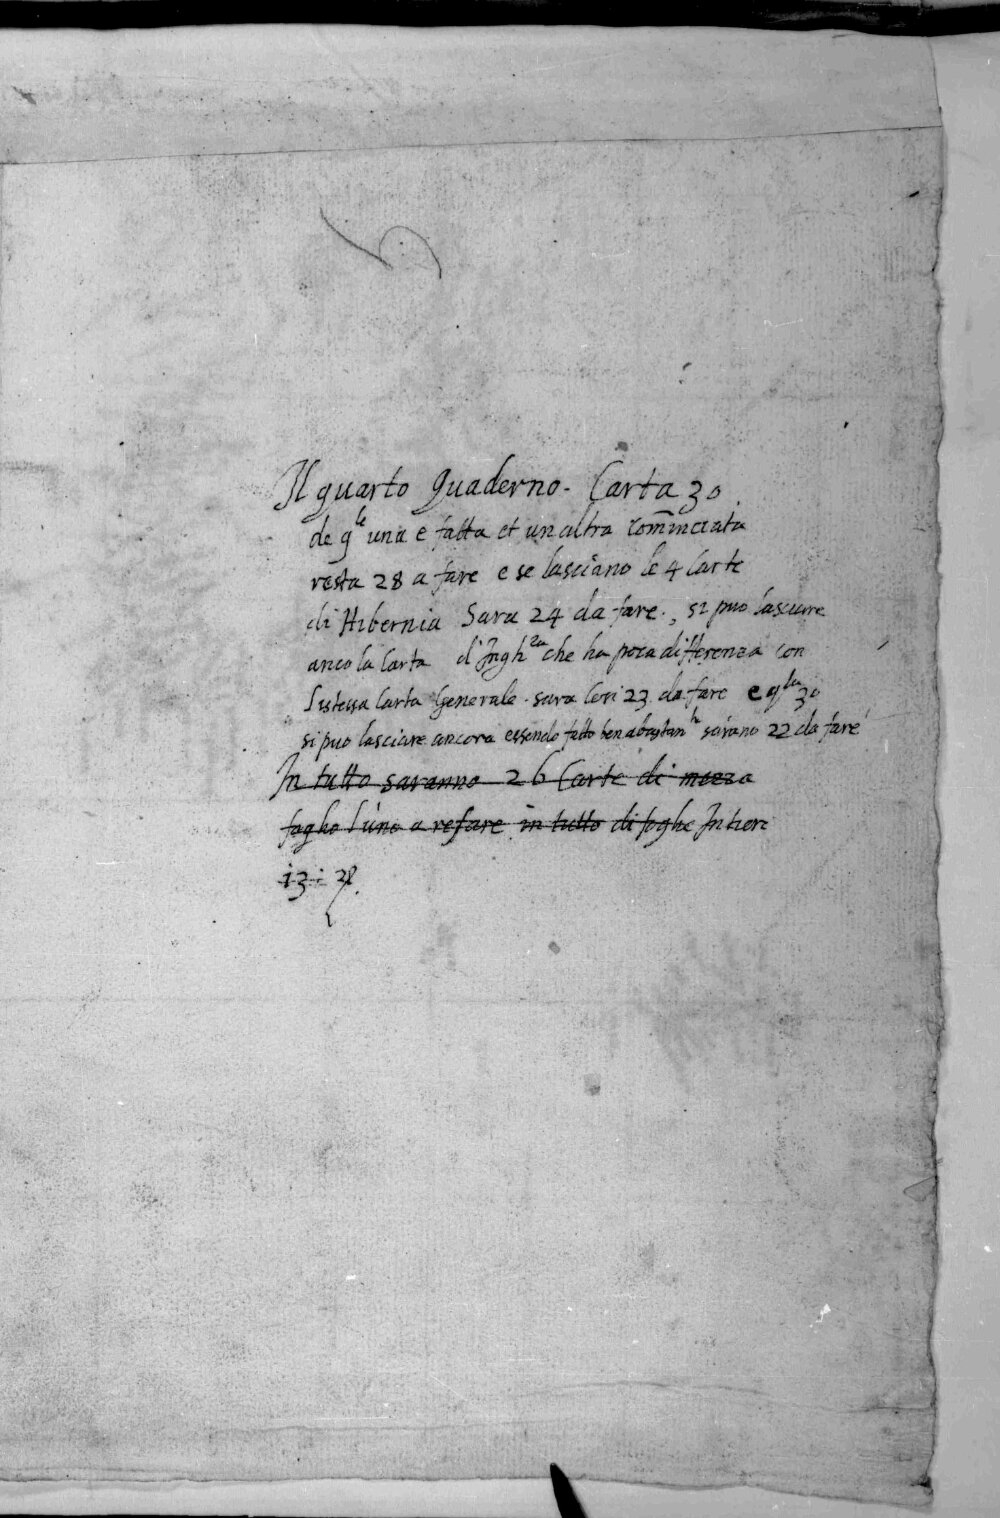 Il quarto Quaderno - Carta 30
de qle una e fatta et un altra cominciata
resta 28 a fare e se lasciano le 4 Carte
di Hibernia Sara 24 da fare., si puo lasciare
anco la Carta d'Inghra che ha poca differenza con
l'istessa Carta Generale. sara Cosi 23 da fare e qla 30
si puo lasciare ancora essendo fatto ben abastanle sarano 22 da fare
In tutto saranno 26 Carte di mezza
foglio l'uno a refare in tutto di foghe Intiere
i3 i